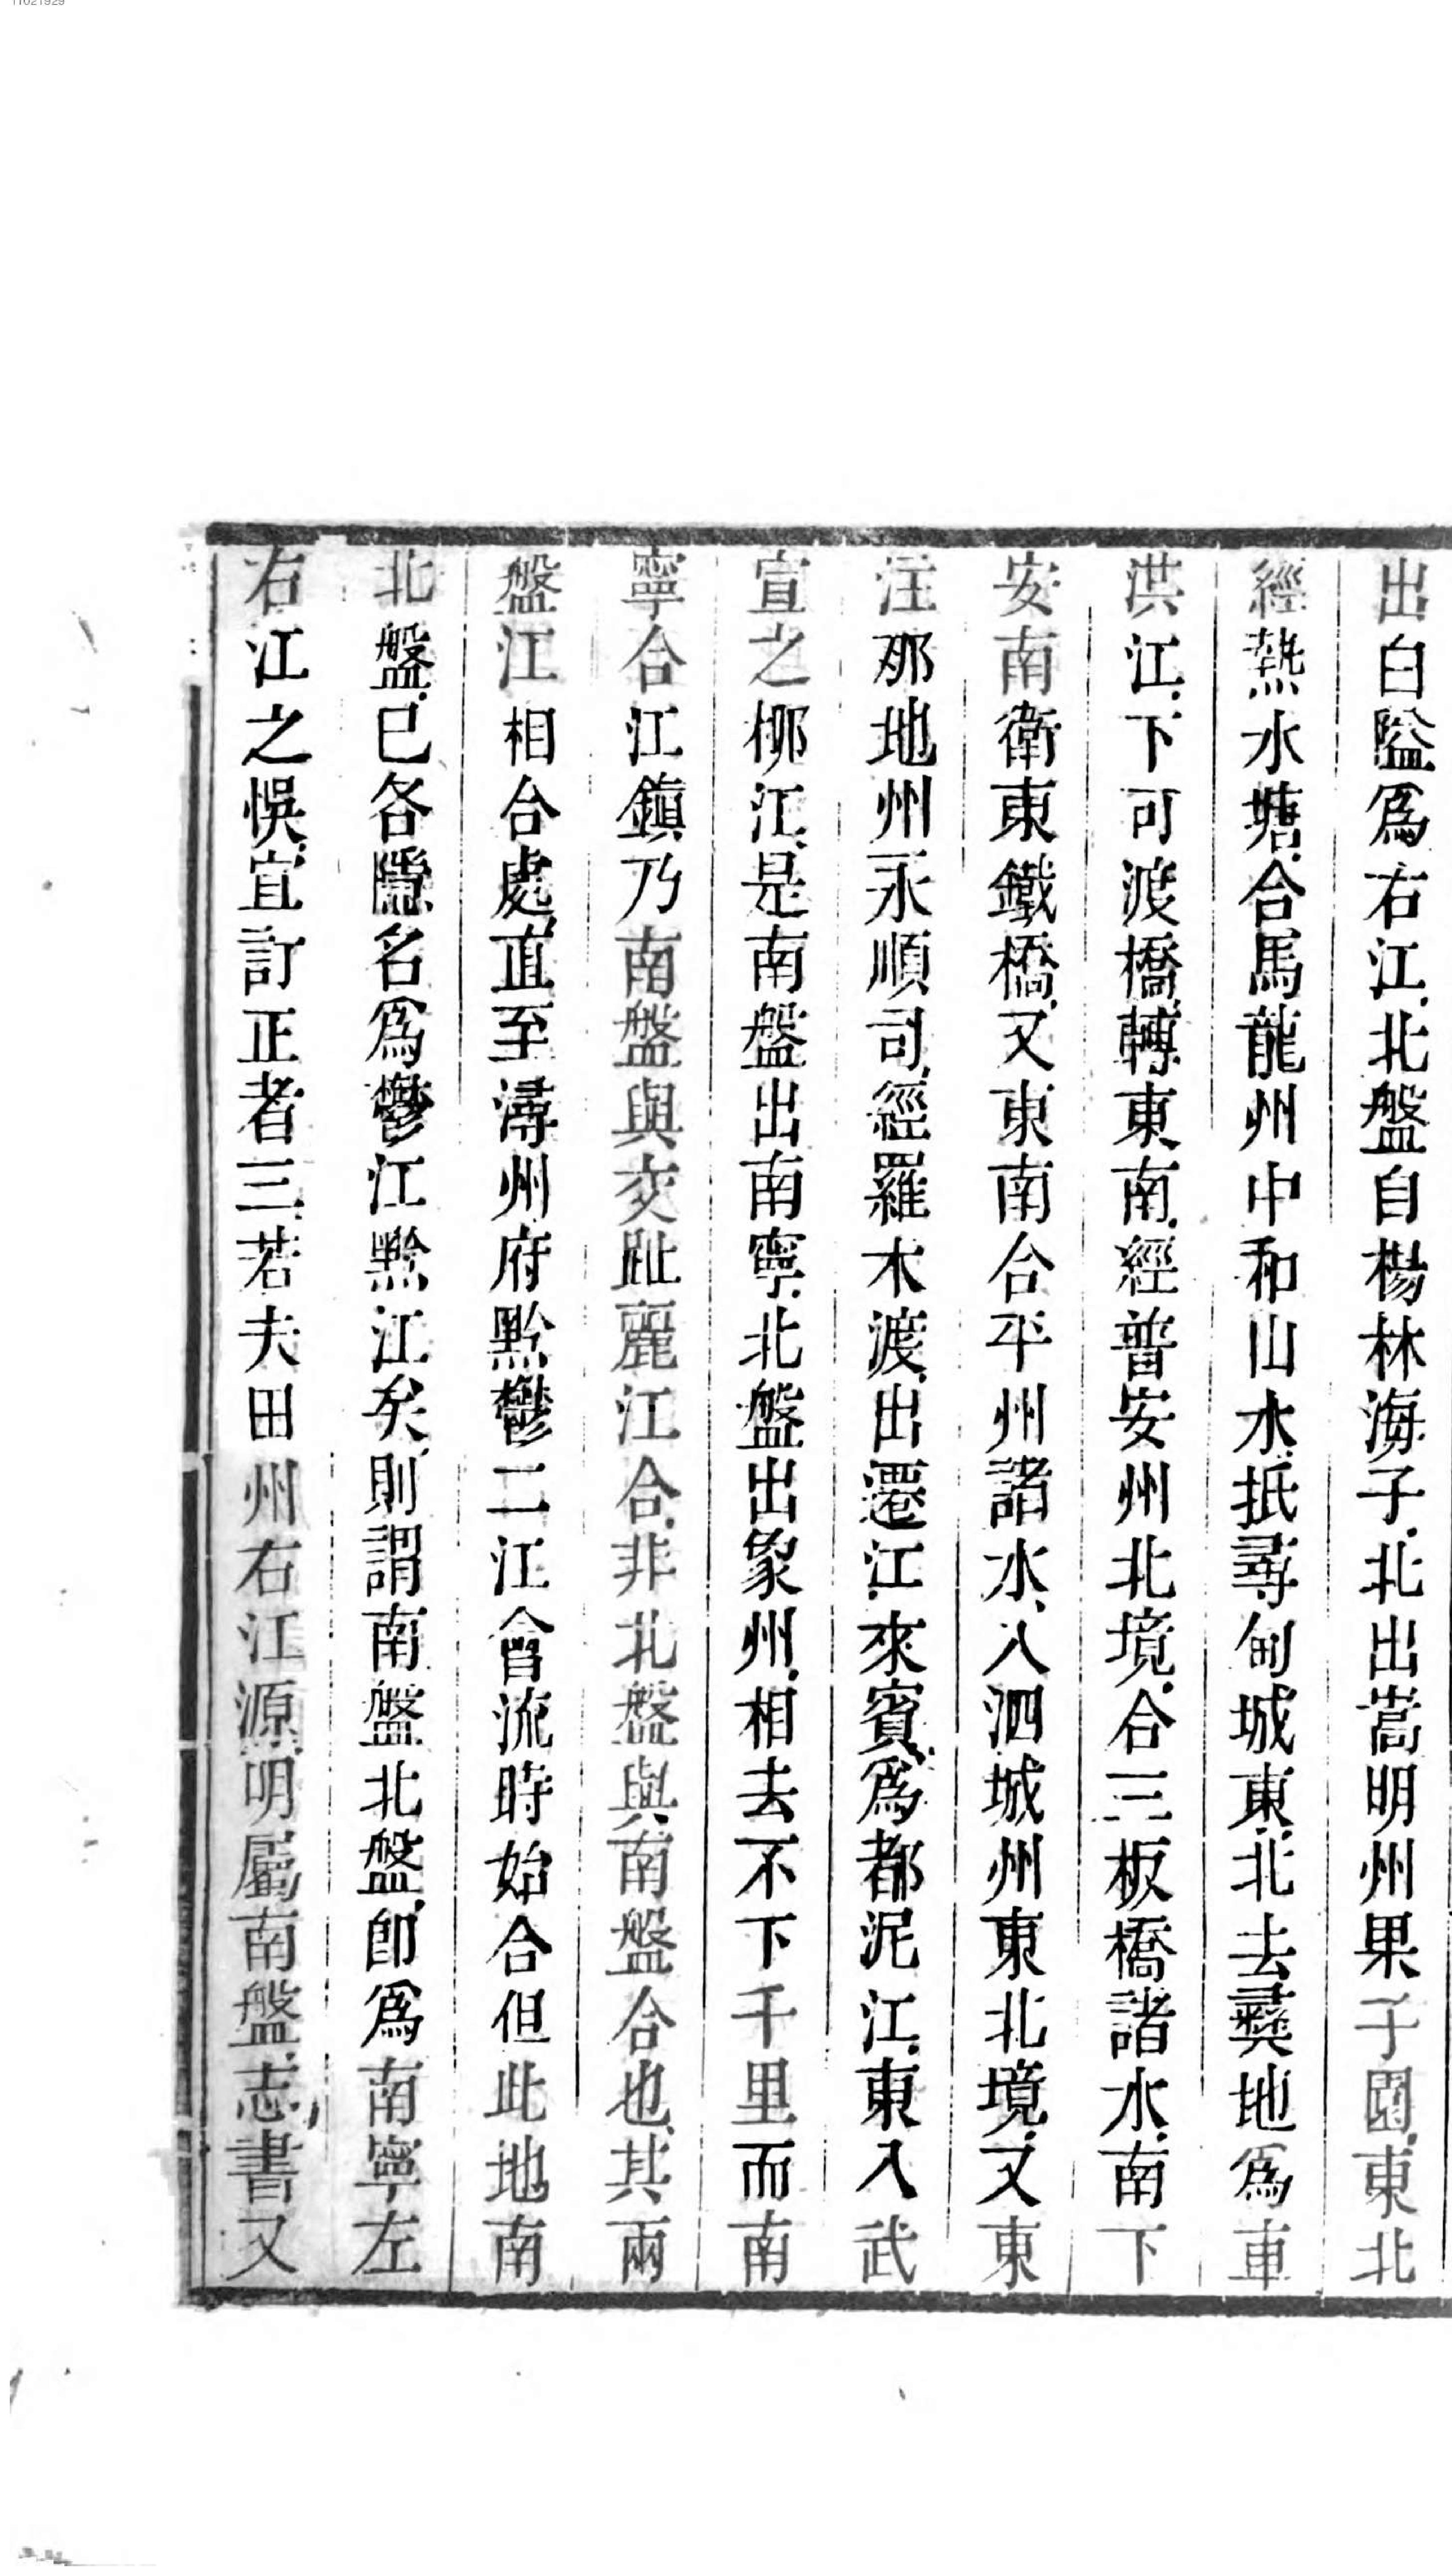 11621929
出白隘爲右江、北盤自楊林海子、北出嵩明州果子園、東北
經熱水塘、合馬龍州中和山水、抵尋甸城東、北去彞地爲車
洪江、下可渡橋、轉東南、經普安州北境、合三板橋諸水、南下
安南衛東鐵橋、又東南合平州諸水、入泗城州東北境、又東
注那地州永順司、經羅木渡、出遷江、來賓、爲都泥江、東入武
宣之柳江、是南盤出南寧、北盤出象州、相去不下千里而南
寧合江鎮乃南盤與交趾麗江合、非北盤與南盤合也、其兩
盤江相合處、直至潯州府黔鬱二江會流時始合但此地南
北盤、已各隱名爲鬱江黔江矣、則謂南盤北盤、卽爲南寧左
右江之悞、宜訂正者三、若夫田州右江源、明屬南盤、志書又